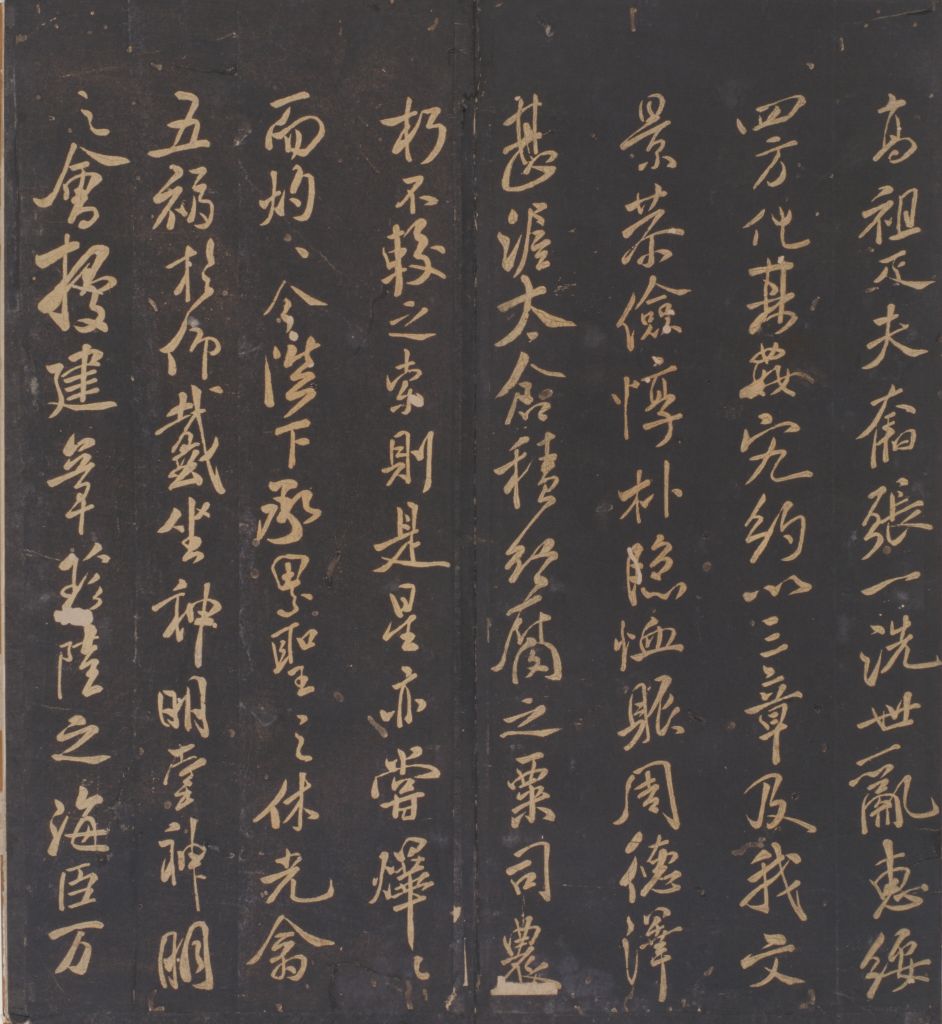 高祖足夫奮張一洗世亂惠綏
四方化其姦宄約以三章及我文
景恭儉惇朴隱恤賑周德澤
甚滂太倉積紅腐之粟司農
朽不較之索則是星亦嘗爗〻
而灼〻今陛下承累聖〻休光翕
五福於仰戴坐神明堂神明
之會攬建章於陸之海臣万